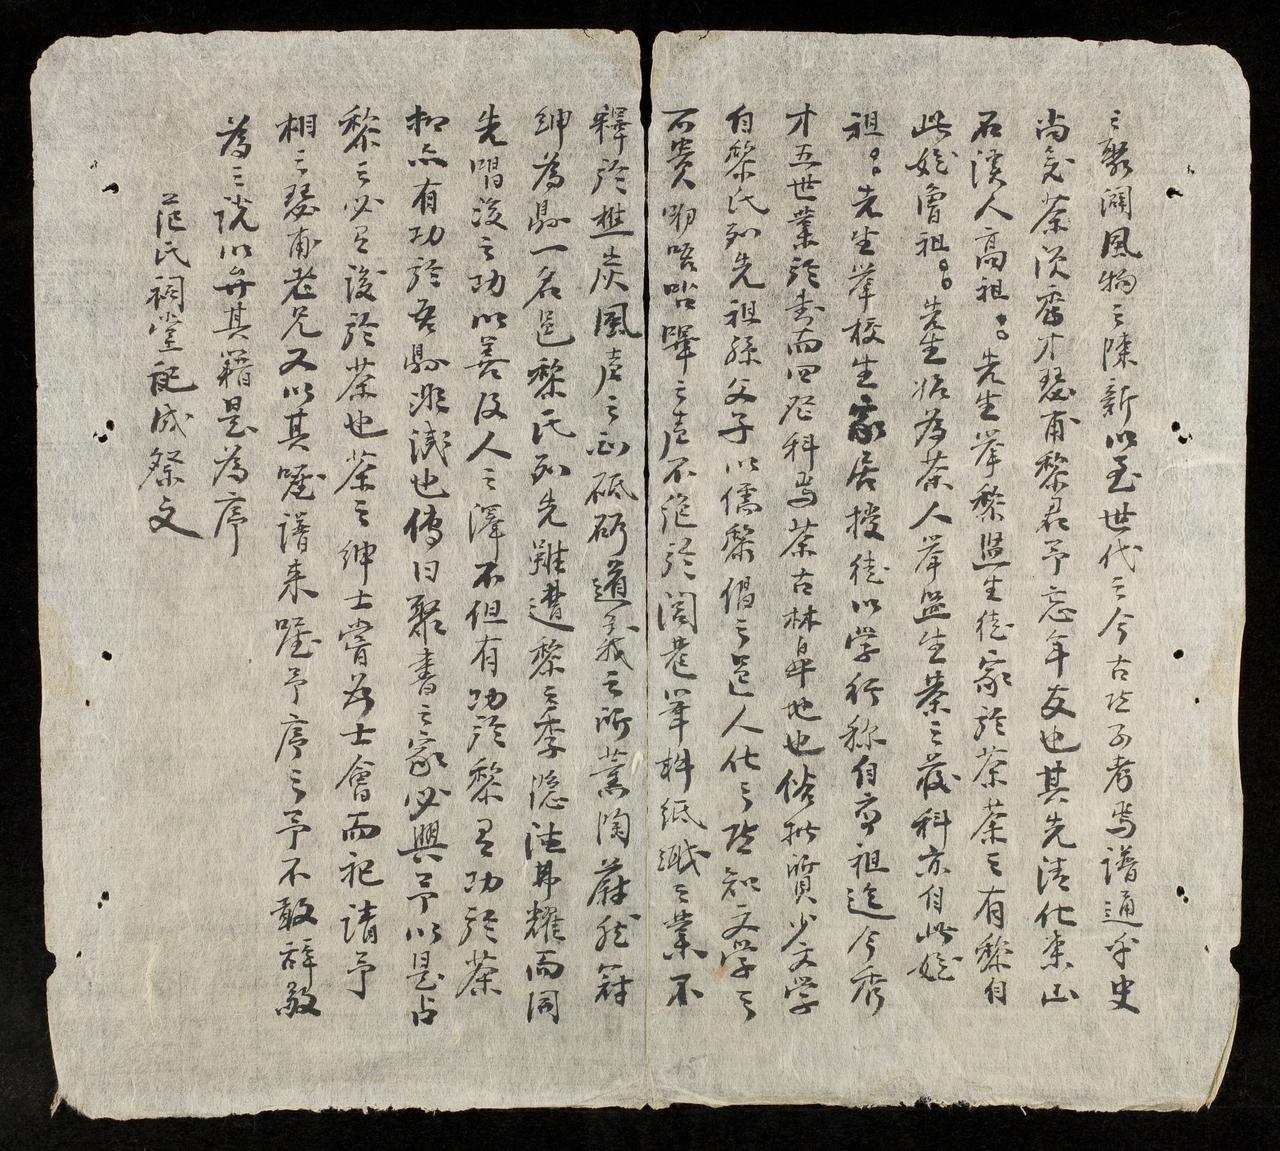 之聚濶風物之陳新以至世代之今古皆于考焉譜通乎史
尚矣茶漢秀才瑟甫黎君予忘年友也其先清化東山
石溪人高祖〻先生举黎監生徒家於茶茶之有黎自
此始曾祖〻先生始為茶人举監生茶之發科亦自此始
祖〻先生举校生家居授徒以学行称自高祖迄今秀
才五世業於書而四登科焉茶古林阜地也俗椎質少文学
自黎氏列先祖孫父子以儒黎倡之邑人化之皆知文学之
可貴咿唔呫嗶之声不絶於閭巷筆耕紙織之業不
釋於樵炭風声之所砥砺道義之所薰陶蔚然冠
紳為縣一名邑黎氏列先雖遭黎之季隱德弗耀而同
先唱後之功以善及人之澤不但有功於黎且功於茶
抑亦有功於吾縣非淺也傳曰聚書之家必興予以是占
黎之必且後於茶也茶之紳士嘗為士會而祀請予
相之瑟甫老兄又以其嘱譜来嘱予序之予不敢辞敬
為之説以弁其籍是為序
范氏祠堂記成祭文